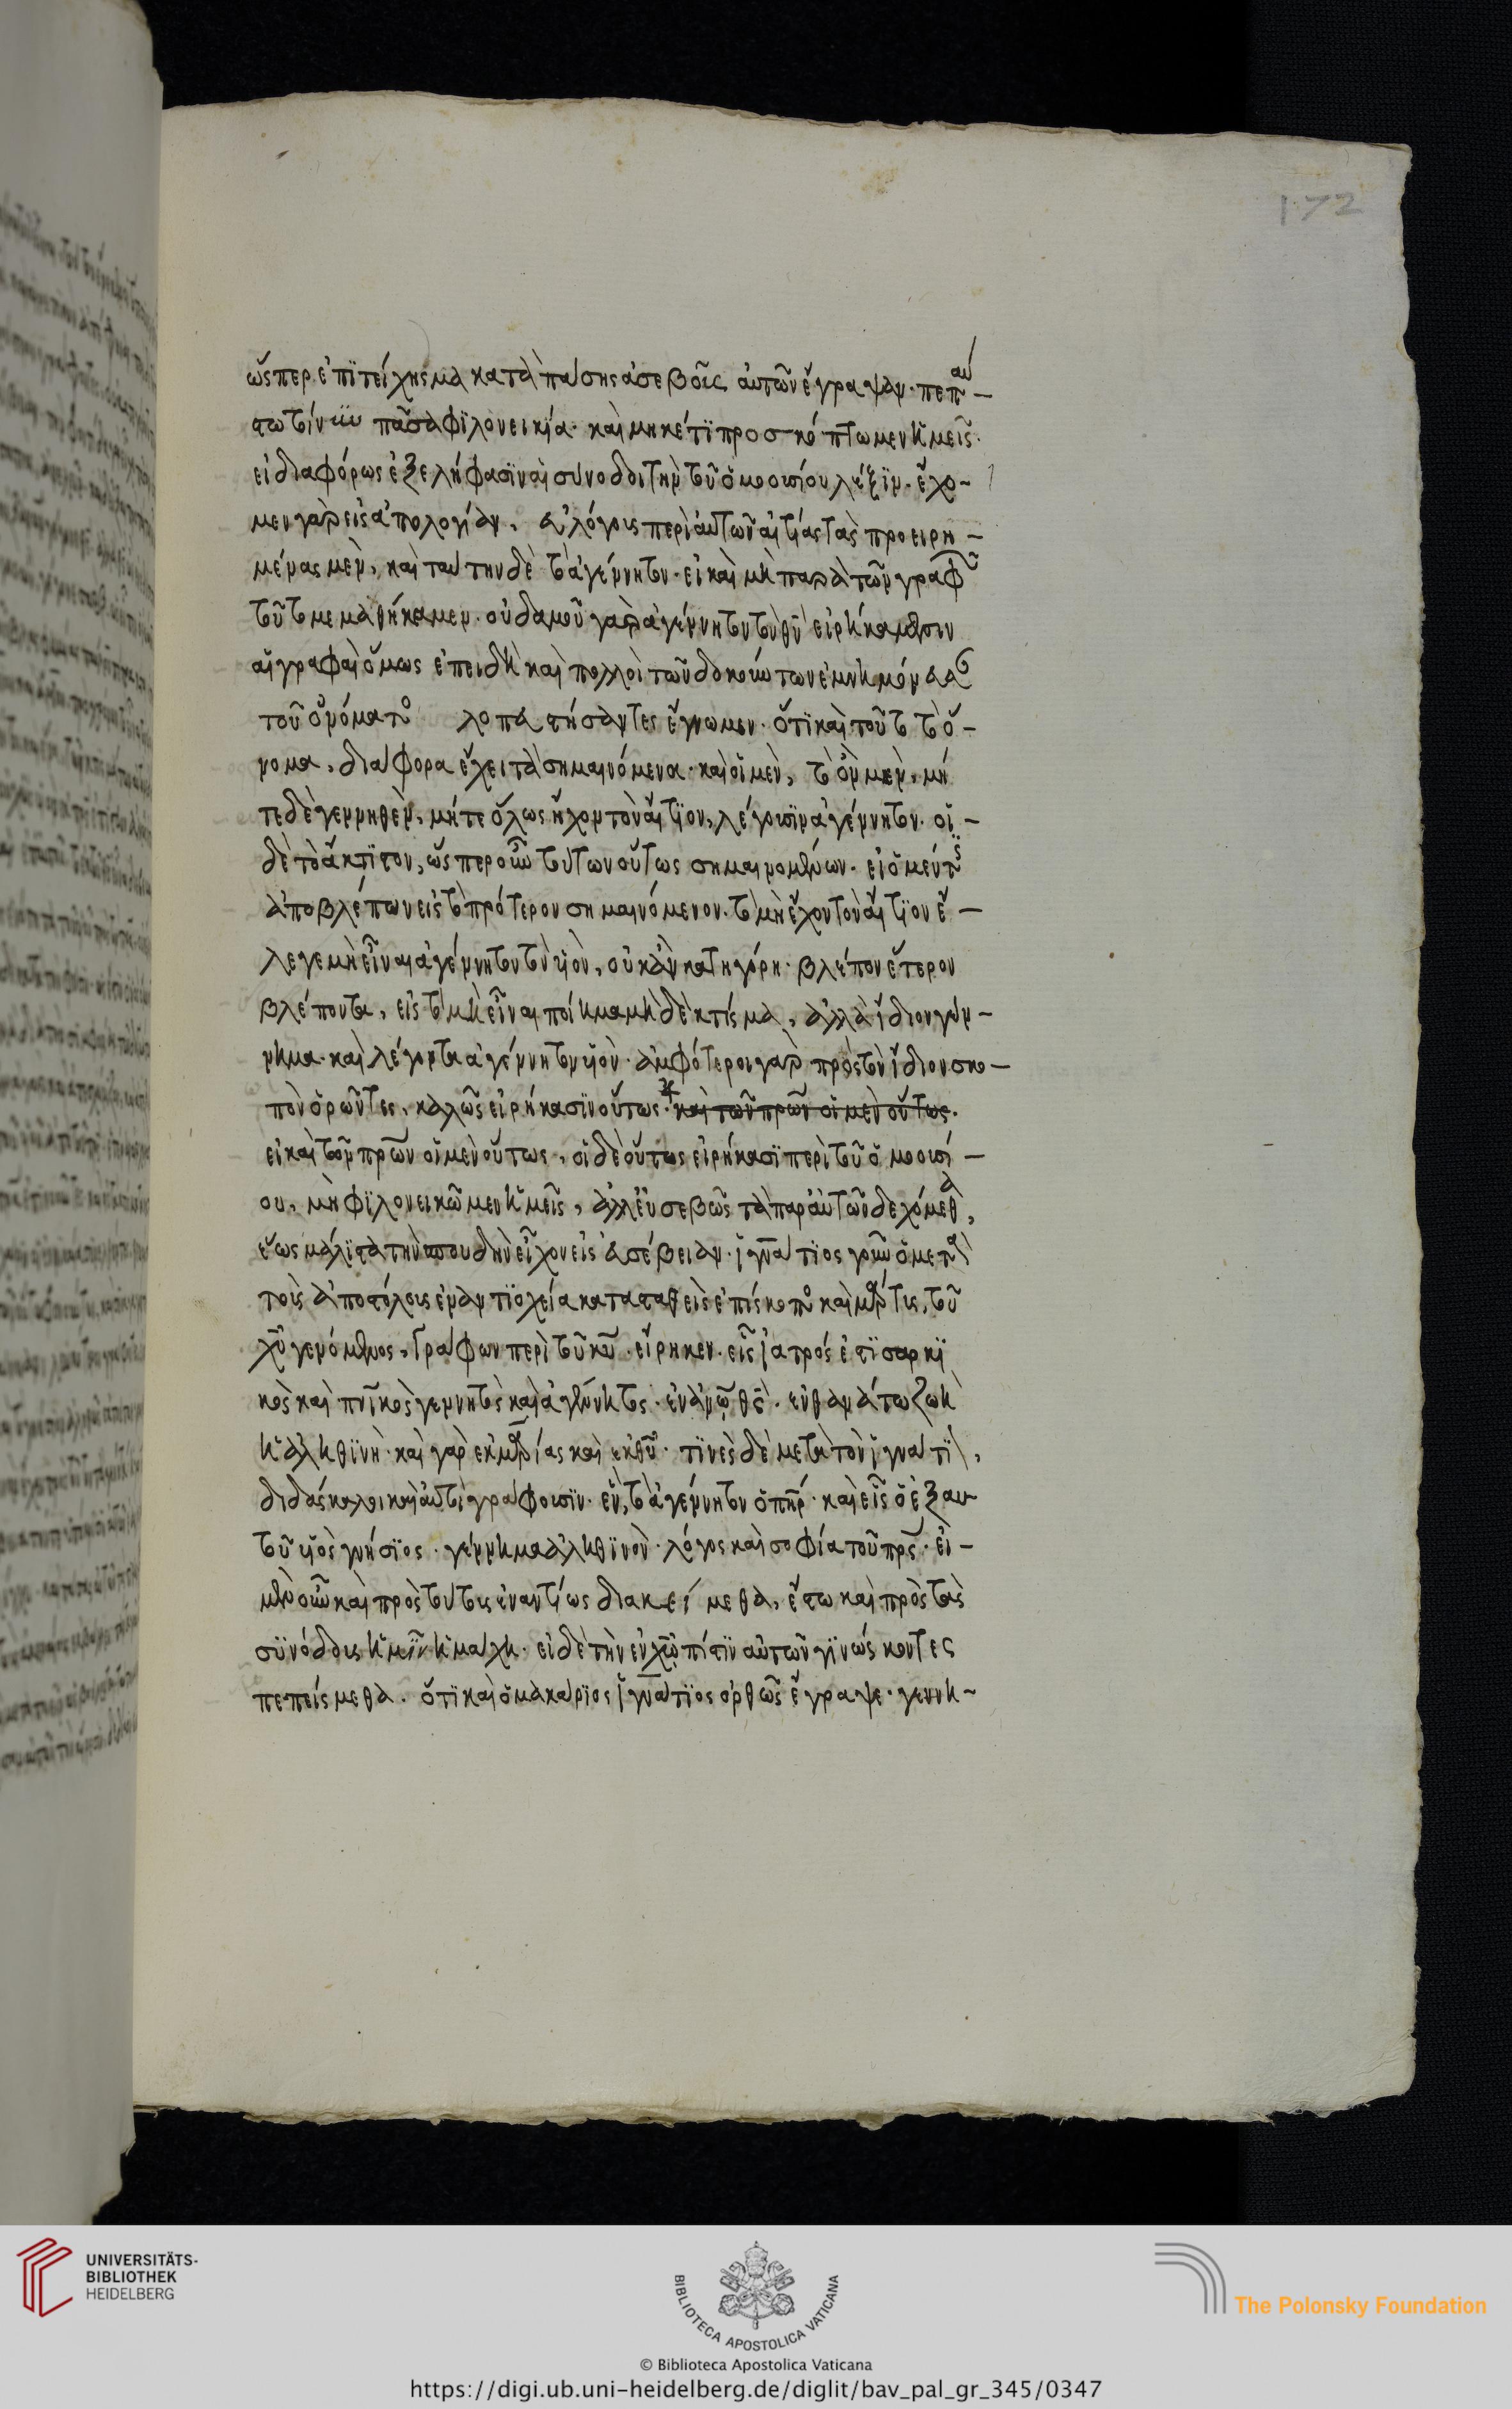 172
ὥσπερ ἐπιτείχησμα κατὰ πάσης ἀσεβοῦς αὐτῶν ἔγραψαν. πεπαύ-
στω πᾶσα φιλονεικία. καὶ μηκέτι προσκόπτωμεν ἡμεῖς.
εἰ διαφόρως ἐξειλήφασιν αἱ σύνοδοι τὴν τοῦ ὁμοουσίου λέξιν. ἔχο-
μεν γὰρ εἰς ἀπολογίαν, περὶ αὐτῶν αἰτίας τὰς προειρη-
μένας μὲν, καὶ ταύτην δὲ τὸ ἀγέννητον. εἰ καὶ μὴ παρὰ τῶν γραφῶν
τοῦτο μεμαθήκαμεν. οὐδαμοῦ γὰρ ἀγέννητον τὸν θν εἰρήκασιν
αἱ γραφαὶ ὅμως ἐπειδὴ καὶ πολλοὶ τῶν δοκούντων ἐμνημόνευ
τοῦ ὀνόματο ἔγνωμεν. ὅτι καὶ τοῦτο τὸ ὄ-
νομα, διάφορα ἔχει τὰ σημαινόμενα. καὶ οἱ μὲν, τὸ ὂν μὲν, μή
τε δὲ γεννηθὲν, μήτε ὅλως ἔχον τὸν αἴτιον, λέγουσιν ἀγέννητον. οἱ -
δὲ τὸ ἄκτιστον, ὥσπερ οὖν τούτων οὕτως σημαινομένων. εἰ ὁ μέν τις
ἀποβλέπων εἰς τὸ πρότερον σημαινόμενον. τὸ μὴ ἔχον τὸν αἴτιον ἔ -
λεγε μὴ εἶναι ἀγέννητον τὸν υἱὸν, οὐκ ἂν κατηγόρη. βλέπον ἕτερον
βλέποντα, εἰς τὸ μὴ εἶναι ποίημα μηδὲ κτίσμα, ἀλλὰ ἴδιον γέν -
νημα. καὶ λέγοντα ἀγέννητον υἱὸν. ἀμφότεροι γὰρ πρὸς τὸν ἴδιον σκο -
πὸν ὁρῶντες. καλῶς εἰρήκασιν οὕτως. καὶ τῶν πρων οἱ μὲν οὕτως.
εἰ καὶ τῶν πρων οἱ μὲν οὕτως, οἱ δὲ οὕτως εἰρήκασι περὶ τοῦ ὁμοουσί -
ου, μὴ φιλονεικῶμεν ἡμεῖς, ἀλλ' εὐσεβῶς τὰ παρ' αὐτῶν δεχόμεθα,
ἕως μάλιστα τὴν σπουδὴν εἶχον εἰς ἀσέβειαν. ἰγνάτιος γοῦν ὁ μετὰ
τοὺς ἀποστόλους ἐν ἀντιοχεία κατασταθεὶς ἐπίσκοπο καὶ μάρτυς, τοῦ
χυ γενόμενος, γράφων περὶ τοῦ κυ. εἴρηκεν. εἷς ἰατρός ἐστι σαρκι
κὸς καὶ πνικὸς γεννητὸς καὶ ἀγέννητος. ἐν ανω θς. ἐν θανάτω ζωὴ
ἡ ἀληθινὴ. καὶ γὰρ ἐκ μαρίας καὶ ἐκ θυ. τινὲς δὲ μετὰ τὸν ἰγνάτι,
διδάσκαλοι καὶ αὐτοὶ γράφουσιν. ἓν, τὸ ἀγέννητον ὁ πηρ. καὶ εἷς ὁ ἐξ αυ
τοῦ υἱὸς γνήσιος. γέννημα ἀληθινὸν. λόγος καὶ σοφία τοῦ πρς. εἰ -
μὲν οὖν καὶ πρὸς τούτους ἐναντίως διακείμεθα, ἔστω καὶ πρὸς τὰς
συνόδους ἡμῖν ἡ μάχη. εἰ δὲ τὴν ἐν χω πίστιν αὐτῶν γινώσκοντες
πεπείσμεθα. ὅτι καὶ ὁ μακάριος ἰγνάτιος ὀρθῶς ἔγραψε. γεννη -
UNIVERSITÄTS-
BIBLIOTHEK
HEIDELBERG
BIBLIOTECA APOSTOLICA VATICANA
The Polonsky Foundation
© Biblioteca Apostolica Vaticana
https://digi.ub.uni-heidelberg.de/diglit/bav_pal_gr_345/0347